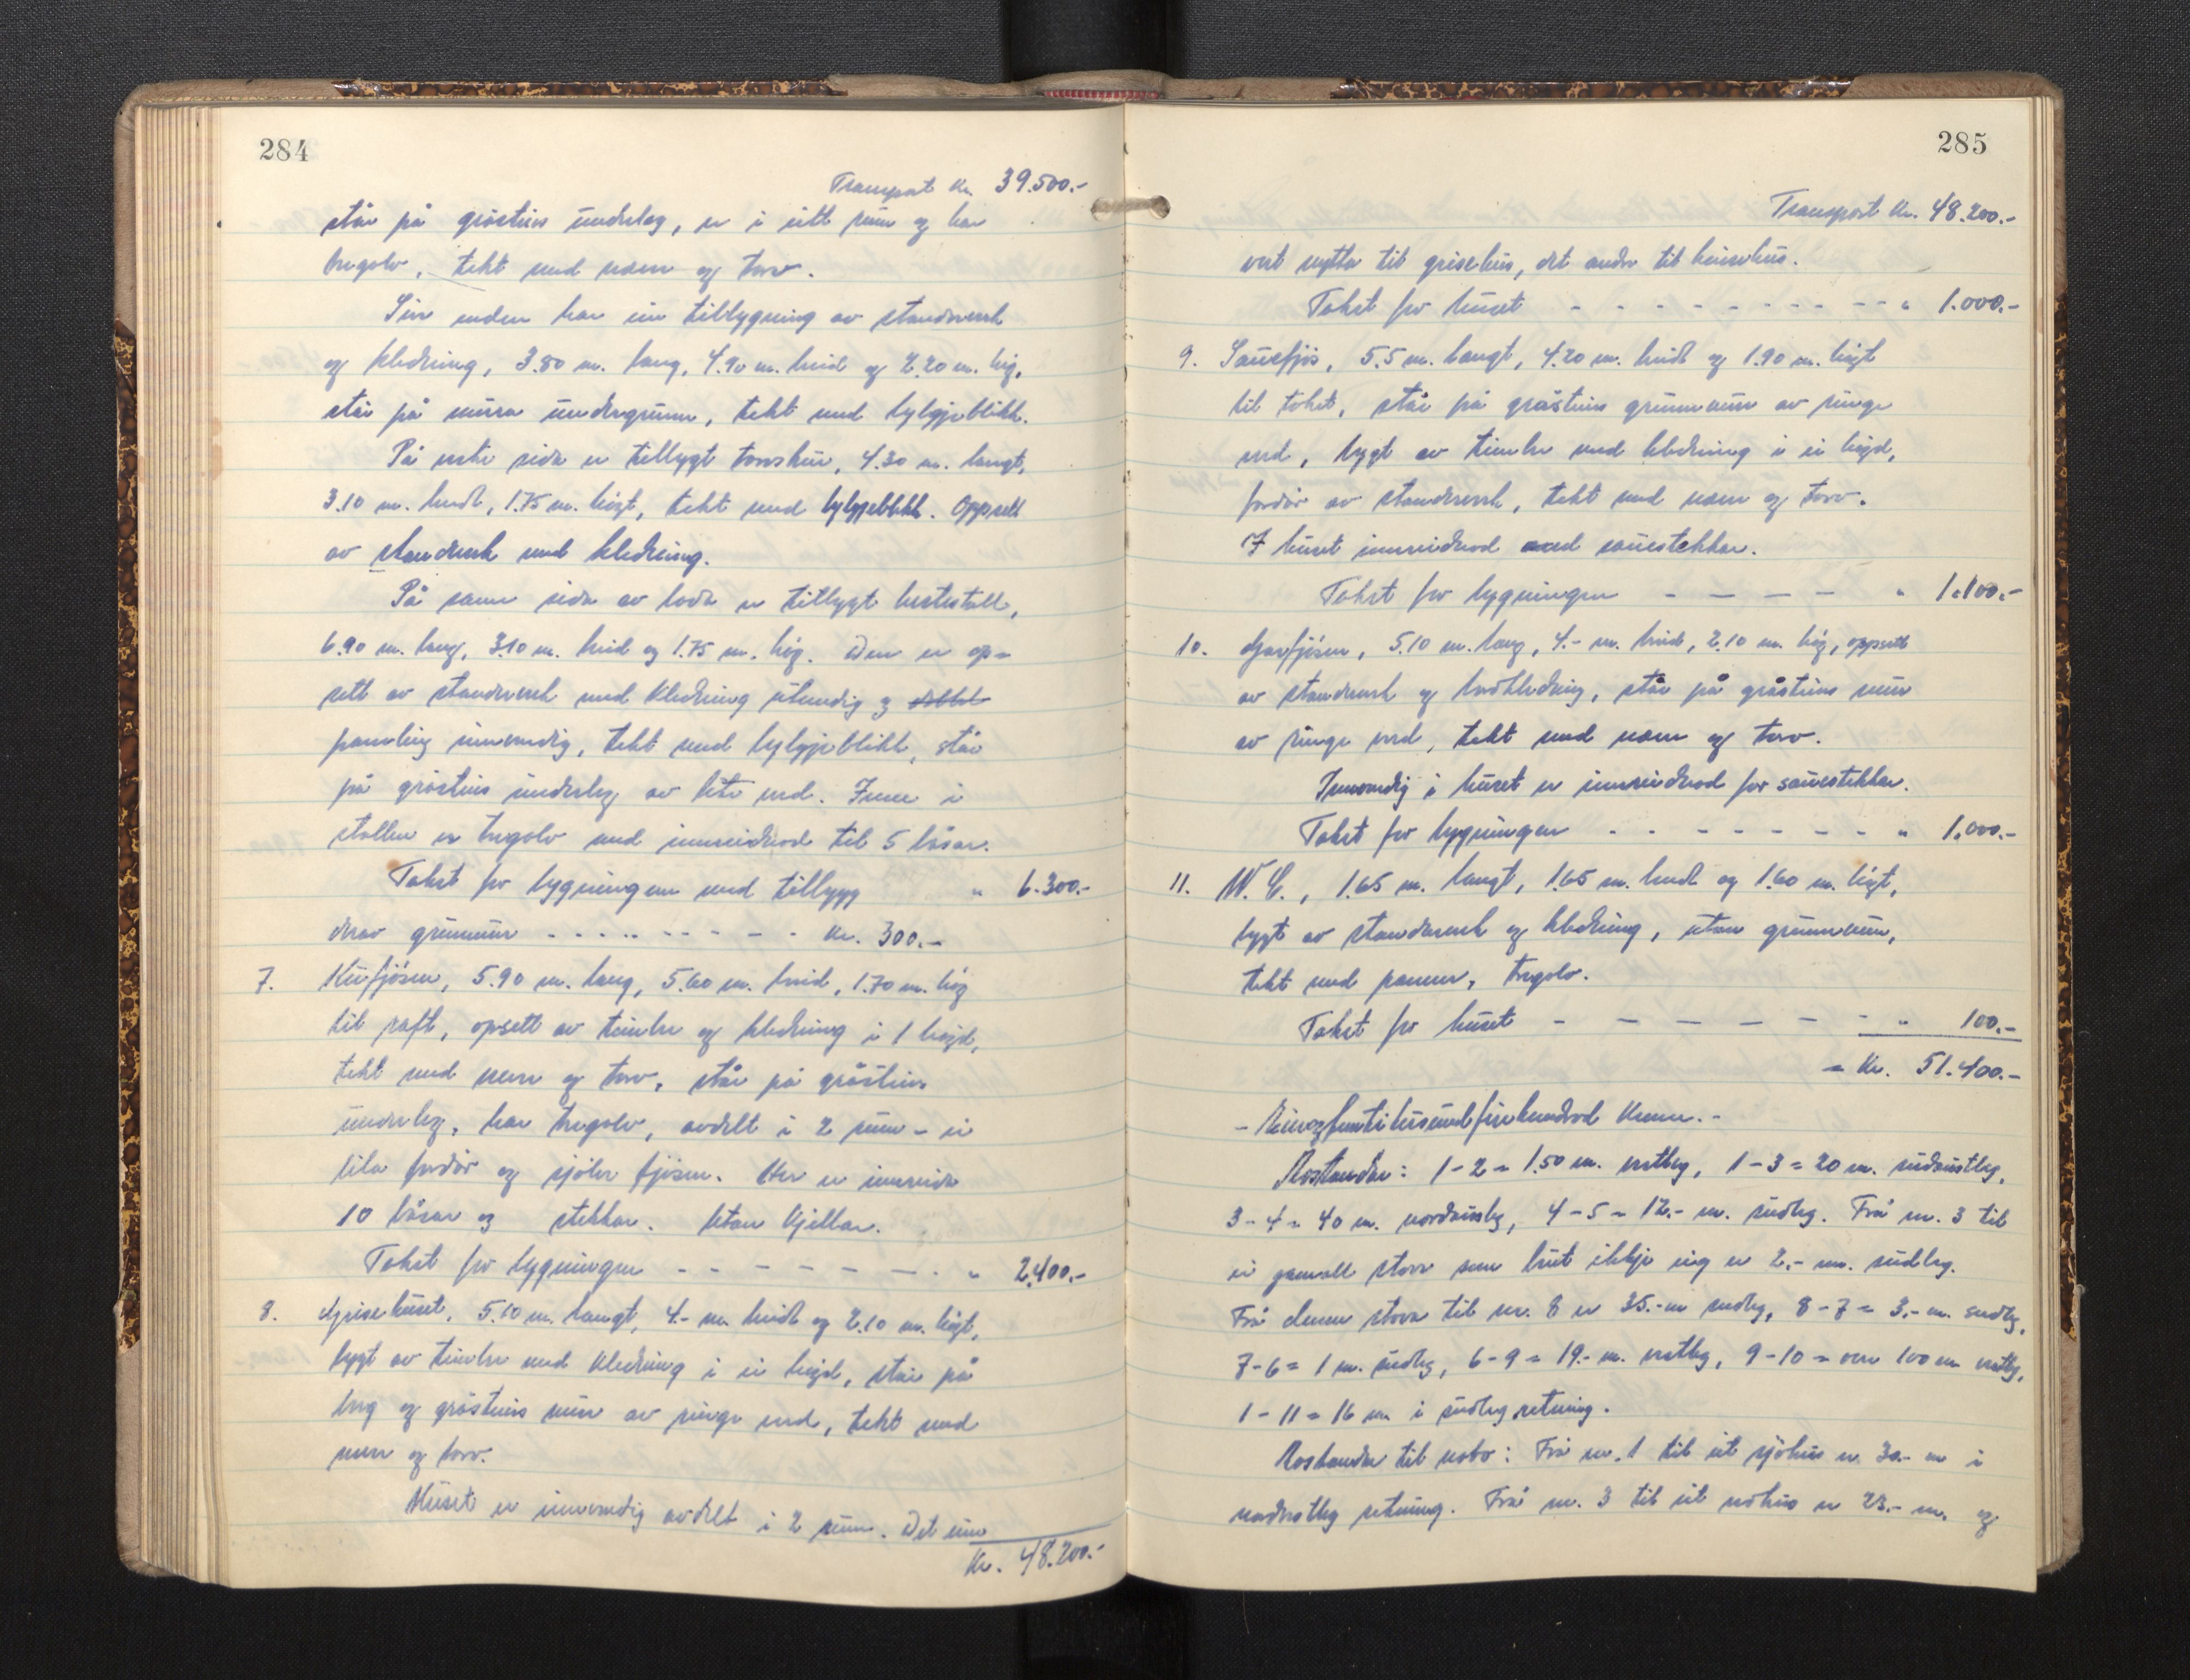 284
Transport kr. 39.500.-
står på gråsteins underlag, er i eitt rum og har
tregolv, tekt med næver og torv.
Eine enden har ein tilbygning av standverk
og kledning, 3.80 m. lang, 4.90 m. breid og 2.20 m. høg,
står på mura undergrunn, tekt med bylgjeblikk.
På vestre sida er tilbygt torvskur, 4.30 m. langt,
3.10 m. breidt, 1.75 m. høgt, tekt med bylgjeblikk. Oppsett
av standverk med kledning.
På same sida av løda er tilbygt hestestall,
6.90 m. lang, 3.10 m. breid og 1.75 m. høg. Den er op-
sett av standverk med kledning utvendig og
paneling innvendig, tekt med bylgjeblikk, står
på gråsteins underlag av lite verd. Inne i
stallen er tregolv med innreidnod til 5 båsar.
Takst for bygningen med tilbygg " 6.300.-
derav grunnmur - - - - - - - - - kr. 300.-
7. Kufjøsen, 5.90 m. lang, 5.60 m. breid, 1.70 m. høg
til raft, opsett av timber og kledning i 1 høgd,
tekt med never og torv, står på gråsteins
underlag, har tregolv, avdelt i 2 rum - ei
lita fordør og sjølve fjøsen. Her er innreida
10 båsar og stekkar. Utan kjellar.
Takst for bygningen - - - - - - - - " 2.400.-
8. Grisehuset, 5.10 m. langt, 4.- m. breidt og 2.10 m. høgt,
bygt av timber med kledning i ei høgd, står på
berg og gråsteins mur av ringe verd, tekt med
never og torv.
Huset er innvendig avdelt i 2 rum. Det eine
Kr. 48.200.-
285
Transport kr. 48.200.-
vert nytta til grisehus, det andre til hønsehus.
Takst for huset - - - - - - - - - - " 1.000.-
9. Sauefjøs, 5.5 m. langt, 4.20 m. breidt og 1.90 m. høgt
til taket, står på gråsteins grunnmur av ringe
verd, bygt av timber med kledning i ei høgd,
fordør av standverk, tekt med næver og torv.
I huset innreidnod med sauestekkar.
Takst for bygningen - - - - " 1.100.-
10. Geitfjøsen, 5.10 m. lang, 4.- m. breid, 2.10 m. høg, oppsett
av standverk og bordkledning, står på gråsteins mur
av ringe verd, tekt med næver og torv.
Innvendig i huset er innreidnod for sauestekkar.
Takst for bygningen - - - - - - - - " 1.000.-
11. W.C., 1.65 m. langt, 1.65 m. breidt og 1.60 m. høgt,
bygt av standverk og kledning, utan grunnmur,
tekt med panner, tregolv.
Takst for huset - - - - - - - " 100.-
= Kr. 51.400.-
- Einogfemtitusundfirehundrod kroner. -
Avstandar: 1 - 2 = 1.50 m. vestleg, 1 - 3 = 20 m. sudaustleg,
3 - 4 = 40 m. nordausleg, 4 - 5 = 12.- m. sudleg. Frå nr. 3 til
ei gamall stove som brukt ikkje meg er 2.- m. sudleg.
Frå denne stova til nr. 8 er 35.- m sudleg, 8 - 7 = 3.- m. sudleg,
7 - 6 = 1 m. sudleg, 6 - 9 = 19.- m. vestleg, 9 - 10 = over 100 m vestleg,
1 - 11 = 16 m. i sudleg retning.
Avstandar til nabo: Frå nr. 1 til eit sjøhus er 30.- m i
nordvestleg retning. Frå nr. 3 til eit vedhus er 23.- m. og